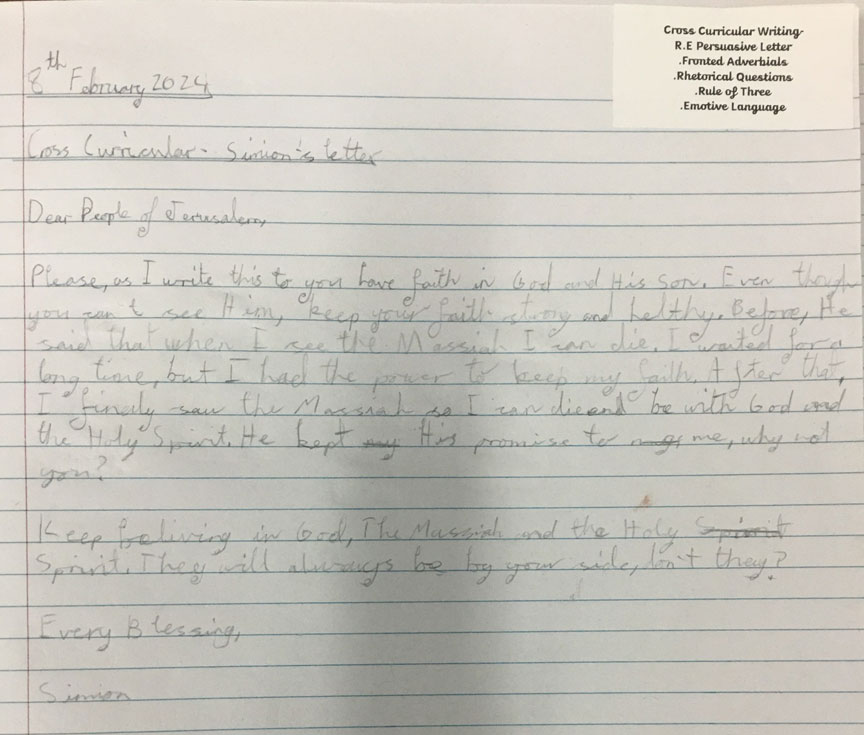 Cross Curricular Writing-
R.E Persuasive Letter
.Fronted Adverbials
.Rhetorical Questions
.Rule of Three
.Emotive Language
8th February 2024
Cross Curricular- Simion's letter
Dear People of Jerusalem,
Please, as I write this to you have faith in God and His Son. Even though
you can't see Him, keep your faith strong and helthy. Before, He
said that when I see the Massiah I can die. I waited for a
long time, but I had the power to keep my faith. After that,
I finely saw the Massiah so I can die and be with God and
the Holy Spirit. He kept my His promise to me, why not
you?
Keep beliving in God, The Massiah and the Holy Spirit
Spririt. They will always be by your side, don't they?
Every Blessing,
Simion